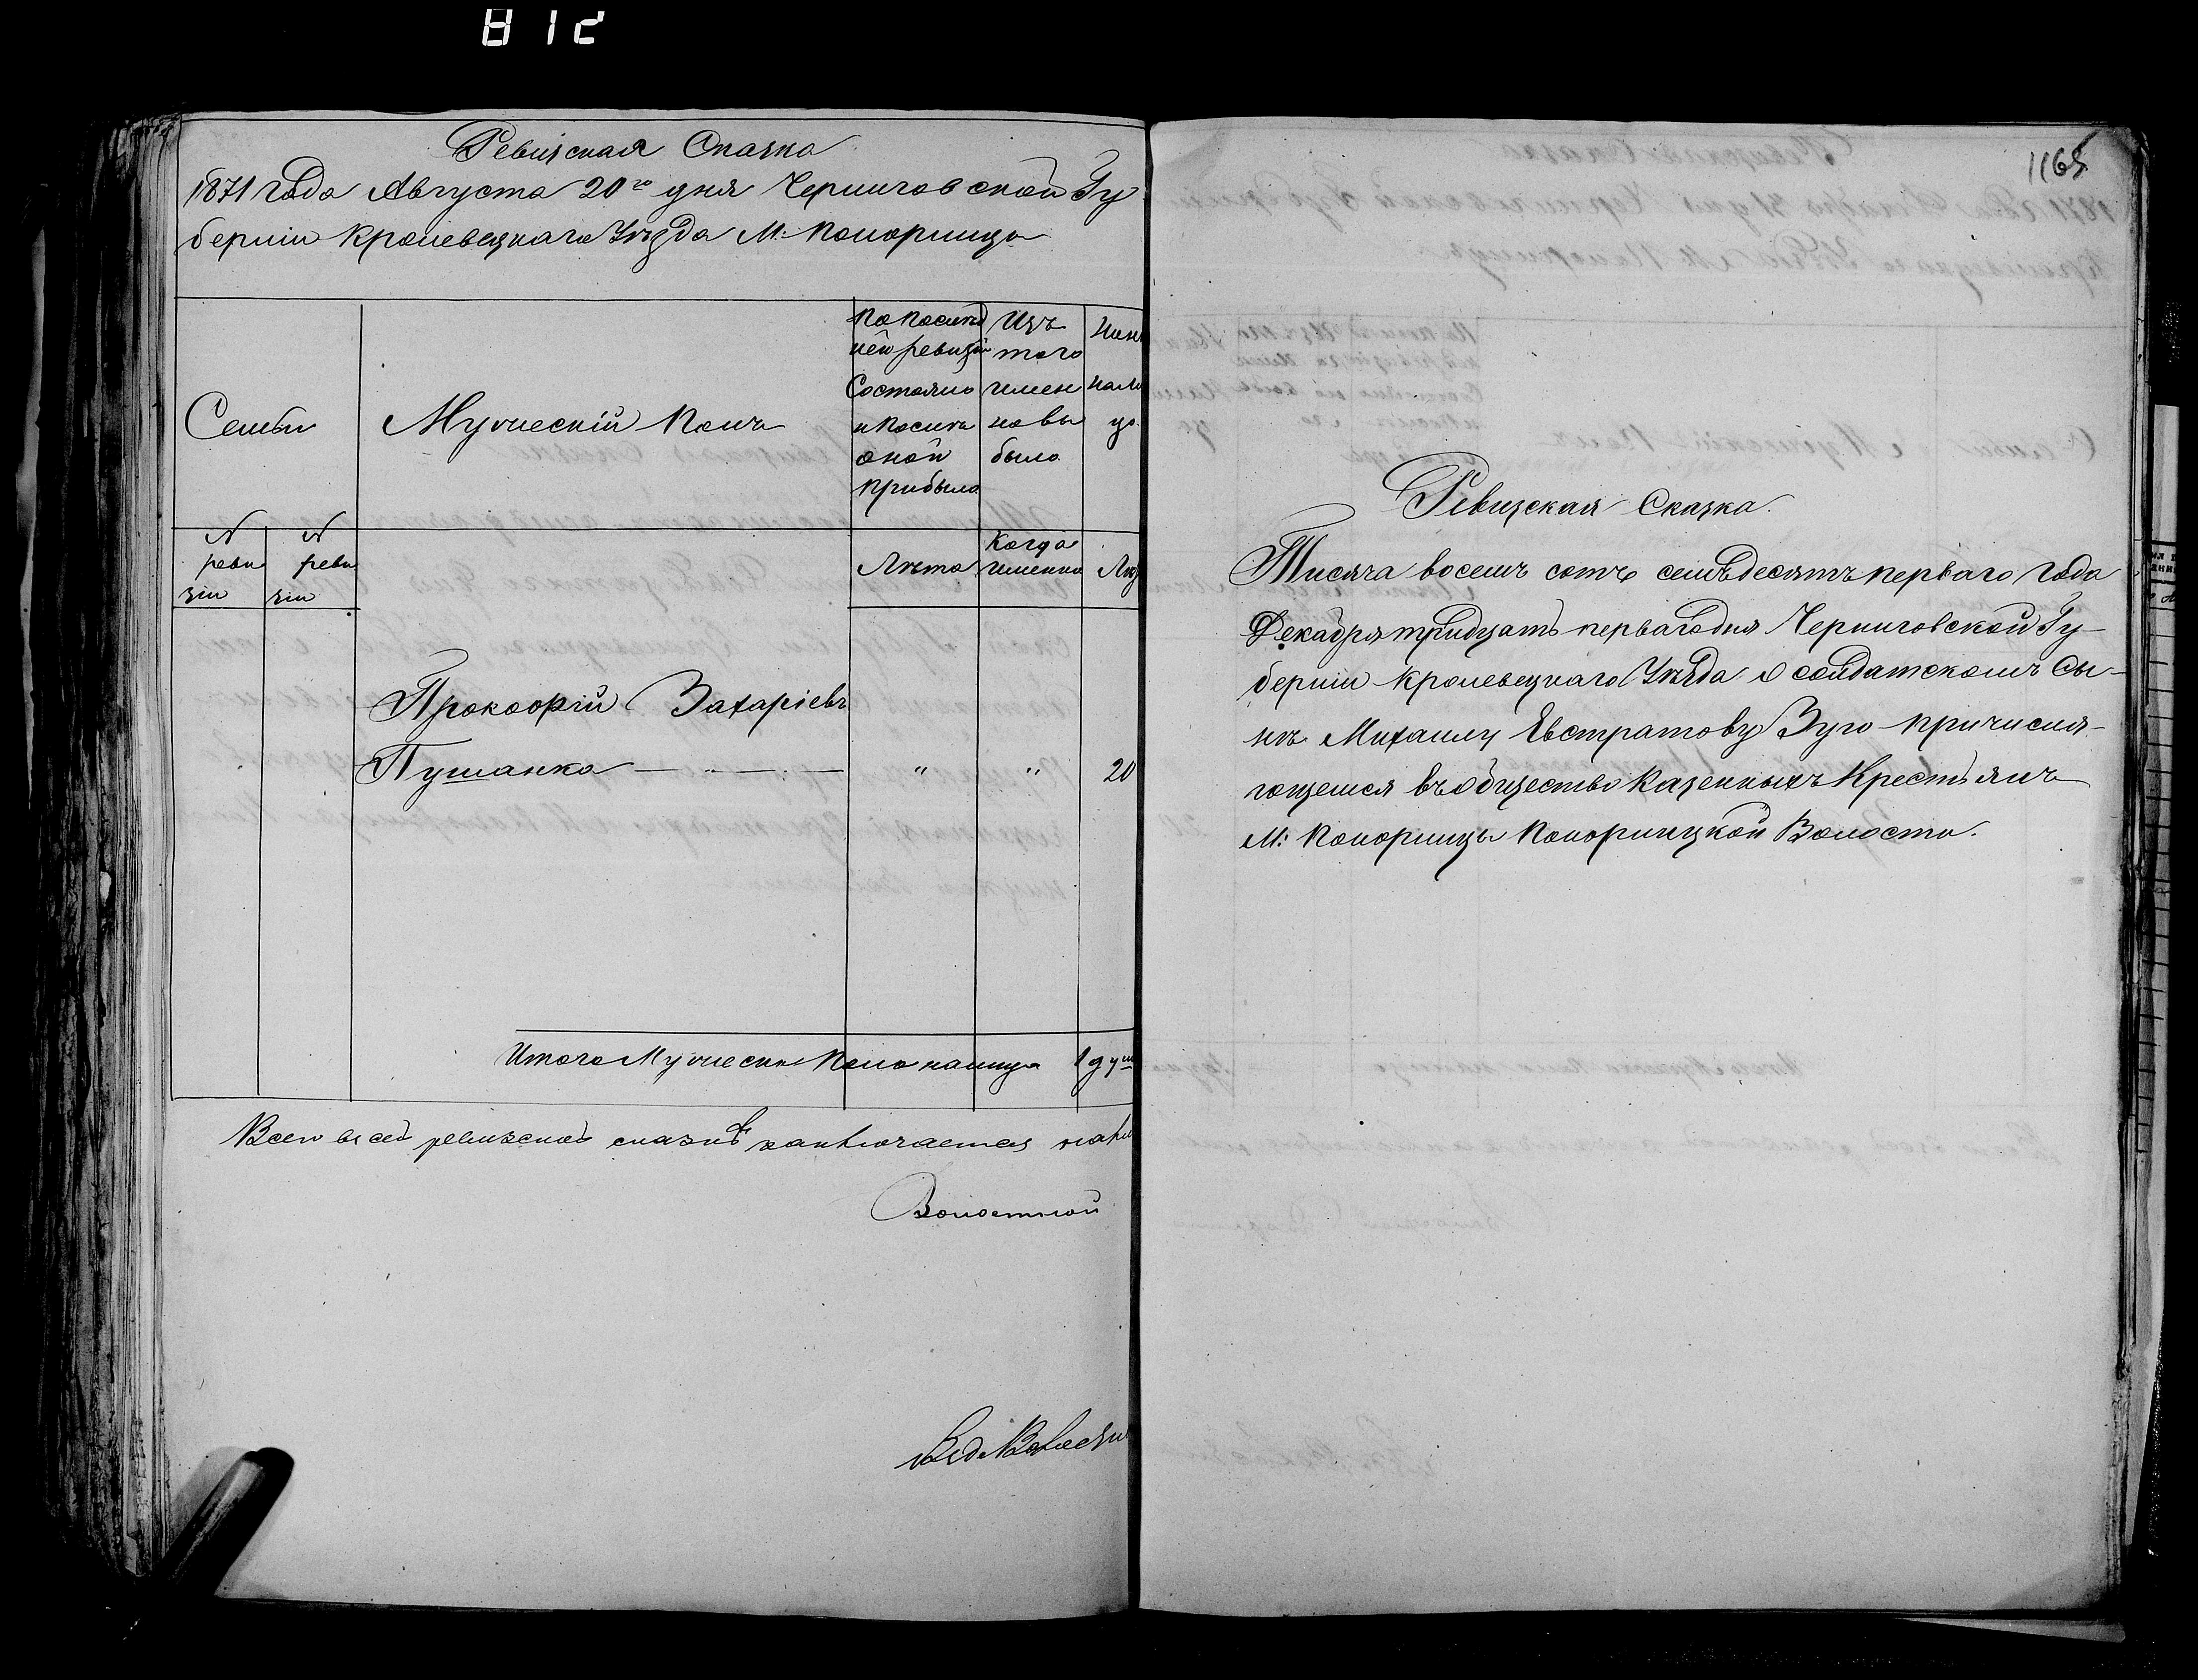 812
Ревизская Сказка
1871 года Августа 20го дня Черниговской Гу
берніи Кролевецкаго Уѣзда М. Понорницы
Семьи
Мужескій Полъ
По послѣд
ней ревизіи
Состояло
и послѣ
оной
прибыло
Изъ
того
имен
но вы
было
Нын
нали
цо
№
реви
зіи
№
реви
зіи
Лѣта
Когда
именно
Лѣ
Прокофій Захаріевъ
Пушанко — " — " — " " 20
Итого Мужеска Пола налицо 1 душ
Всего в сей ревизской сказкѣ заключается
Волостной
1165
Ревизская Сказка.
Тисяча восемъ сотъ семьдесятъ перваго года
Декабря тридцать перваго дня Черниговской Гу-
берніи Кролевецкаго Уѣзда о солдатскомъ сы-
нѣ Михаилу Евстратову Зуго причисля-
ющемся въ общество Казенныхъ Крестьянъ
М: Понорницы Понорницкой Волости.